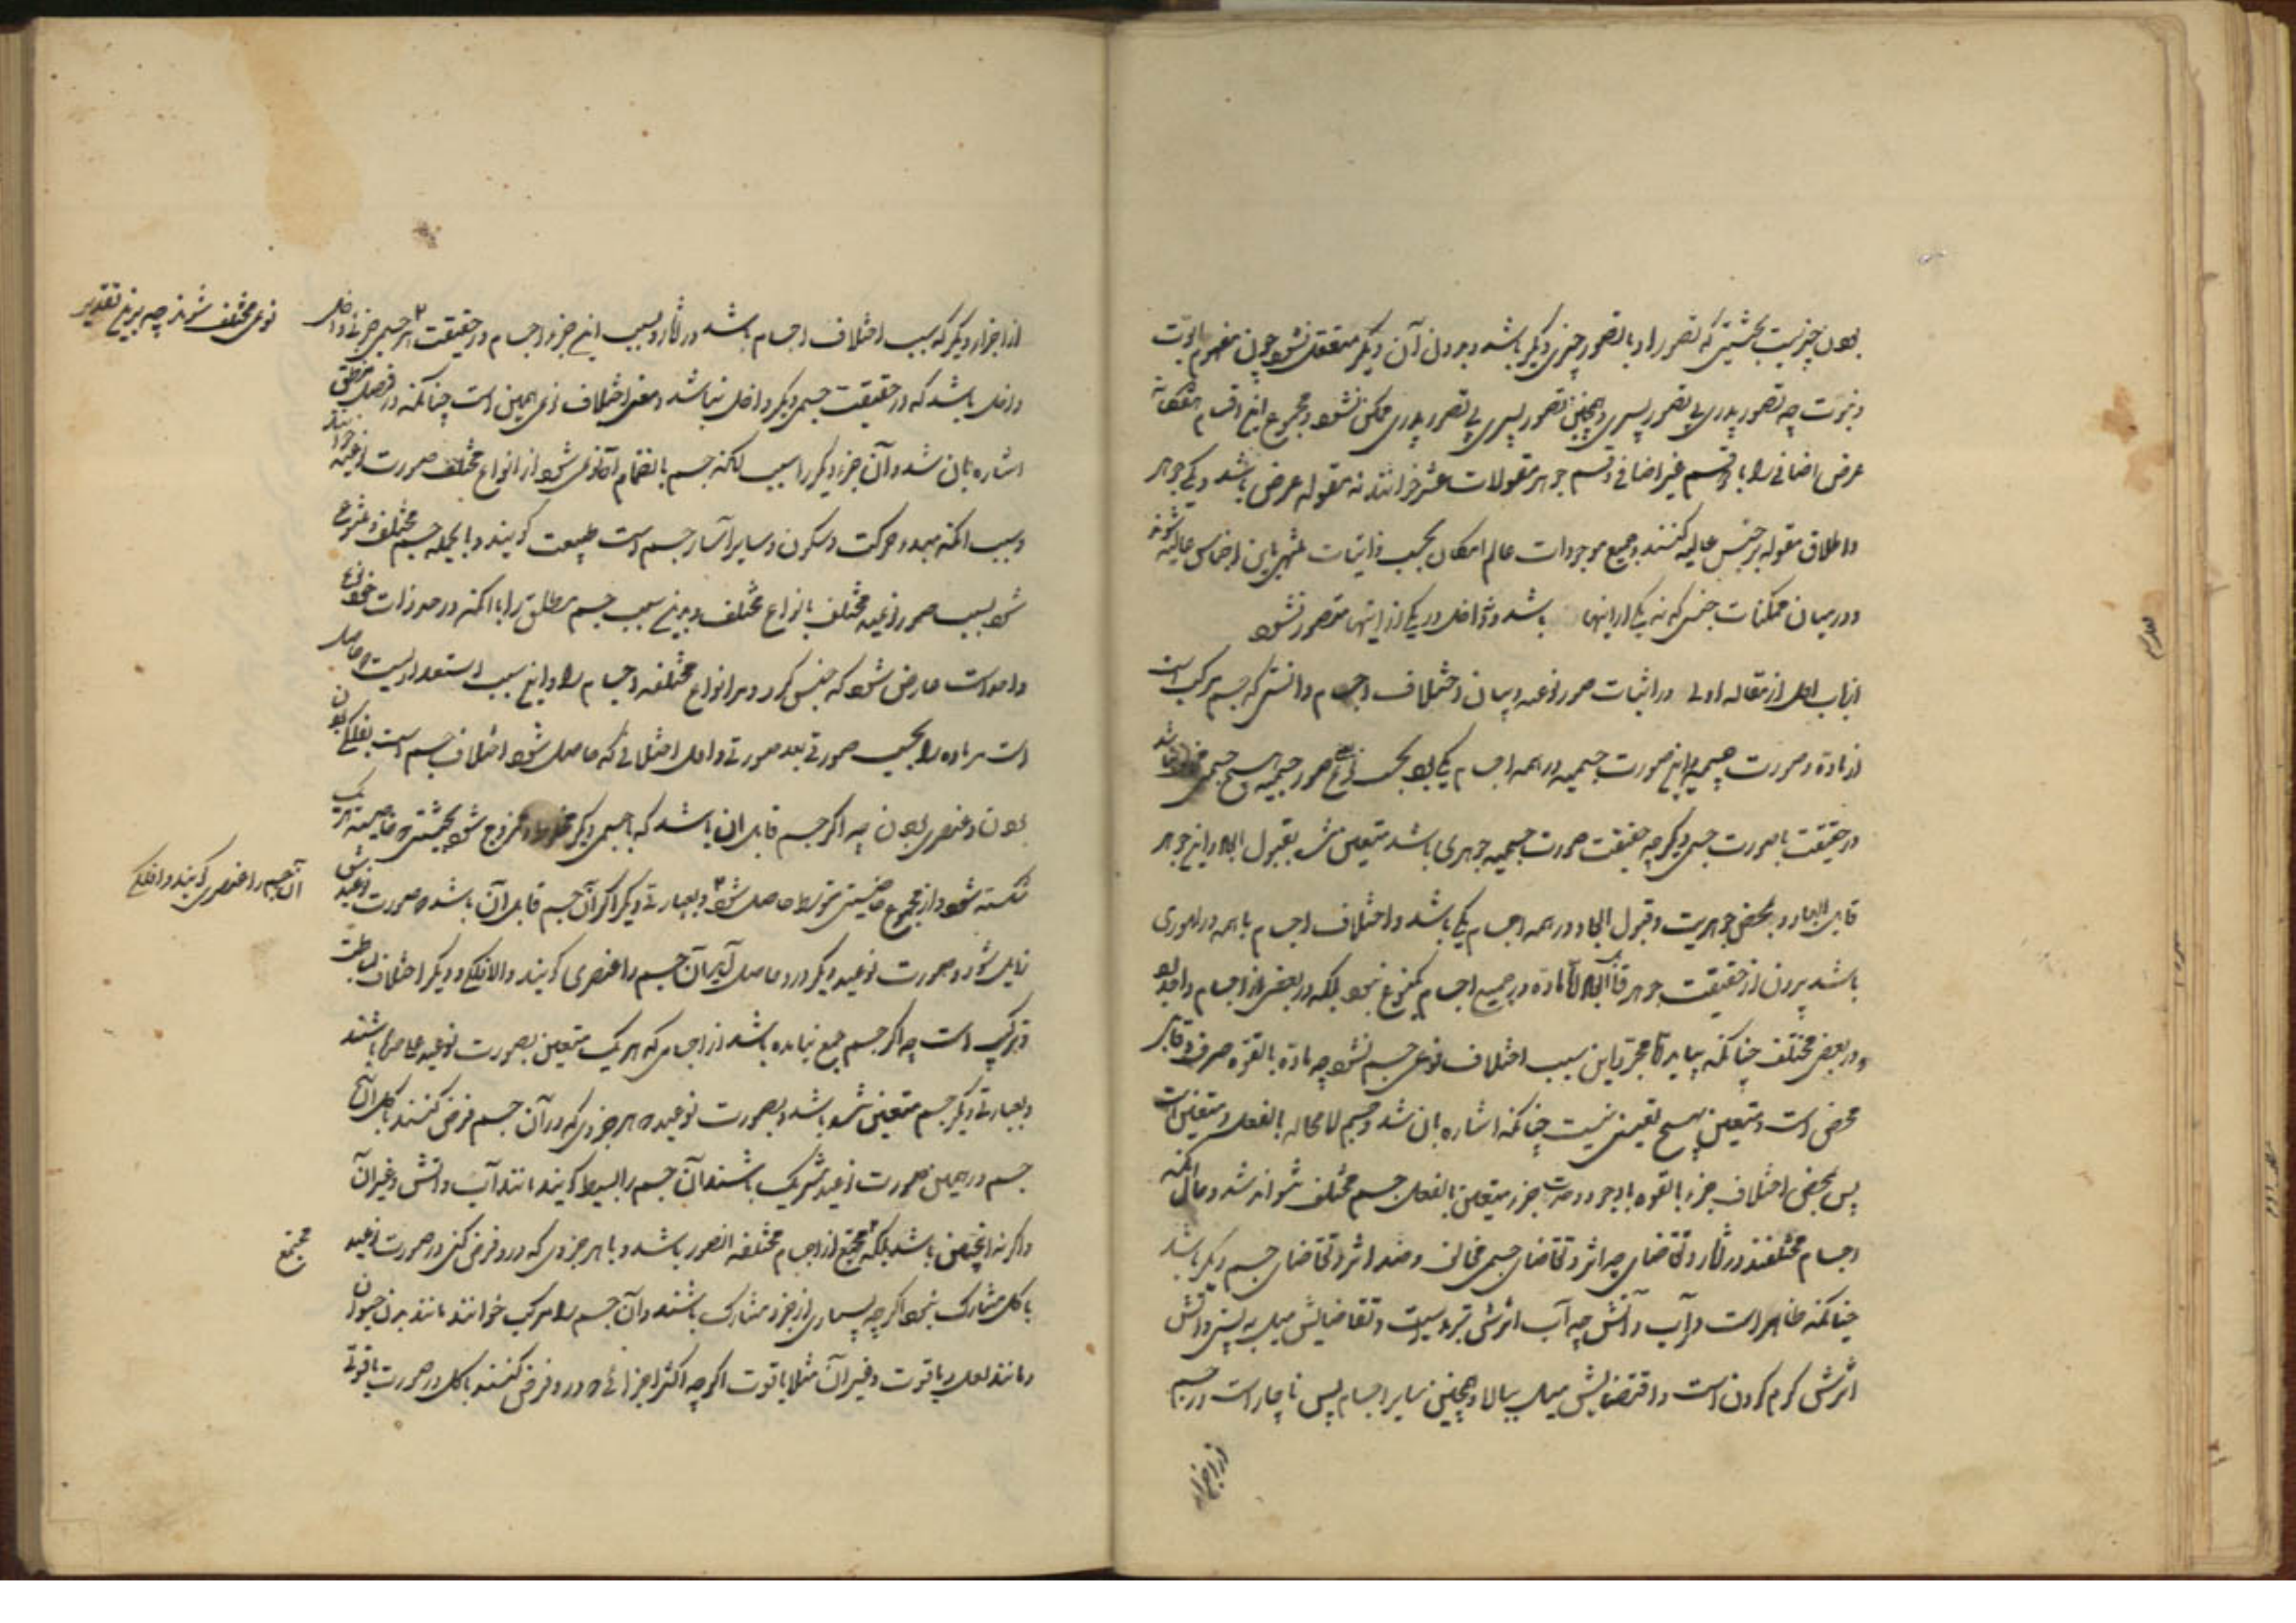 بودن چیزیست بحیثیتی که تصور او با تصور چیزی دیگر باشد و بدون آن دیگر متعقل نشود چون مفهوم ابوّت
و بنوّت چه تصور پدری بی تصور پسری و همچنین تصور پسری بی تصور پدری ممکن نشود و مجموع این اقسام
عرض اضافی را با دو قسم غیر اضافی و قسم جوهر مقولات عشر خوانند نه مقوله عرض باشد و یکی جوهر
و اطلاق مقوله بر جنس عالیه کنند و جمیع موجودات عالم امکان بحسب ذاتیات منتهی باین اجناس عالیه شوند
و در میان ممکنات جنسی که نه یکی از اینها باشد و نه داخل در یکی از اینها متصور نشود
از باب اول از مقاله اولی در اثبات صور نوعیه و بیان اختلاف اجسام دانستی که جسم مرکب است
از ماده و صورت جسمیه و این صورت جسمیه در همه اجسام یکی بود صور جسمیه هیچ جسمی
در حقیقت با صورت جسمی دیگر چه حقیقت صورت جسمیه جوهری باشد متعین شده بقبول ابعاد و این جوهر
قابل ابعاد و بمحض جوهریت و قبول ابعاد در همه اجسام یکی باشد و اختلاف اجسام با همه در اموری
باشد بیرون از حقیقت جوهر قابل ابعاد امّا ماده در جمیع اجسام یک نوع نبود بلکه در بعضی از اجسام واحد بود
و در بعضی مختلف چنانکه بیاید امّا مجرّد این سبب اختلاف نوعی جسم نشود چه ماده بالقوّه صرف و قابل
محض است و متعین بهیچ تعینی نیست چنانکه اشاره بآن شد و جسم لا محاله بالفعل و متعین است
پس بمحض اختلاف جزء بالقوه با وجود وحدت جزء متعین بالفعل جسم مختلف نتواند شد و حال آنکه
اجسام مختلفند در آثار و تقاضای چه اثر و تقاضای جسمی مخالف و ضد اثر و تقاضای جسم دیگر باشد
چنانکه ظاهر است در آب و آتش چه آب اثرش تبرید است و تقاضایش میل به پستی و آتش
اثرش گرم کردن است و اقتضایش میل ببالا و همچنین سایر اجسام پس ناچار است در جسم
از اجزاء
از اجزاء دیگر که سبب اختلاف اجسام باشد در آثار و بسبب این جزو اجسام در حقیقت هر جسمی جزئی داخل
نوعی مختلف شوند چه برین تقدیر
داخل باشد که در حقیقت جسمی دیگر داخل نباشد و معنی اختلاف نوعی همین است چنانکه در فصل منطق
اشاره بآن شد و آن جزء دیگر را سبب آنکه جسم بانضمام آن نوعی شود از انواع مختلف صورت نوعیه خوانند
و سبب آنکه مبدء حرکت و سکون و سایر آثار جسم است طبیعت گویند و بالجمله جسم مختلف و متنوع
شود بسبب صور نوعیه مختلف بانواع مختلف و بدین سبب جسم مطلق را با آنکه در حد ذات خود نوع
و احد است عارض شود که جنس گردد مر انواع مختلفه اجسام را و این سبب استعدادیست که حاصل
است مر ماده را بحسب صورتی بعد صورتی و اول اختلافی که حاصل شود اختلاف جسم است بفلکی بودن
بودن و عنصری بودن چه اگر جسم قابل آن باشد که با جسمی دیگر مخلوط و ممزوج شود بحیثیتی که خاصیت هر یک
شکسته شود و از مجموع خاصیتی متوسط حاصل شود و بعبارتی دیگر اگر آن جسم قابل آن باشد که صورت نوعیه‌اش
آن جسم را عنصری گویند و الا فلکی
زایل شود و صورت نوعیه دیگر در او حاصل آید آن جسم را عنصری گویند و الا فلکی و دیگر اختلاف بساطت
و ترکیب است چه اگر جسم جمع نیامده باشد از اجسامی که هر یک متعین بصورت نوعیه خاص باشند
و بعبارتی دیگر جسم متعین شده باشد بصورت نوعیه که هر جزوی که در آن جسم فرض کنند با کل آن
جسم در همین صورت نوعیه شریک باشند آن جسم را بسیط گویند مانند آب و آتش و غیر آن
و اگر نه اینچنین باشد بلکه مجتمع از اجسام مختلفه الصور باشد و یا هر جزوی که در او فرض کنی در صورت نوعیه
مجتمع
با کل مشارک نبود اگر چه بسیاری از جزو مشارک باشند و آن جسم را مرکب خوانند مانند بدن حیوان
و مانند لعل و یاقوت و غیر آن مثلا یاقوت اگر چه اکثر اجزائی که در او فرض کنند با کل در صورت یاقوتی